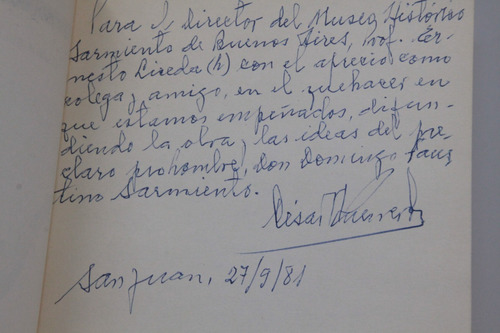 Para el Director del Museo Histórico
Sarmiento de Buenos Aires, prof. Er-
nesto Liceda (h) con el aprecio como
colega y amigo, en el quehacer en
que estamos empeñados, difun-
diendo la obra y las ideas del pre-
claro prohombre, Don Domingo Faus
tino Sarmiento.
César
San Juan, 27/9/81